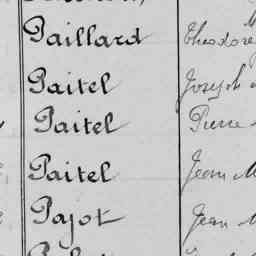 Paillard Théodore
Paitel Joseph
Paitel Pierre
Paitel Jean M
Pajot Jean M